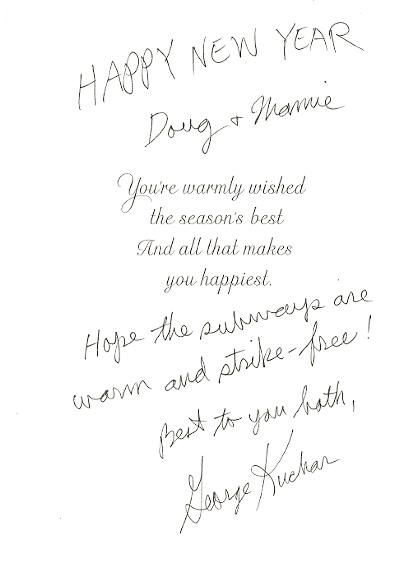 HAPPY NEW YEAR
Doug + Mamie
You're warmly wished
the season's best
And all that makes
you happiest.
Hope the subways are
warm and strike-free!
Best to you both,
George Kuchar